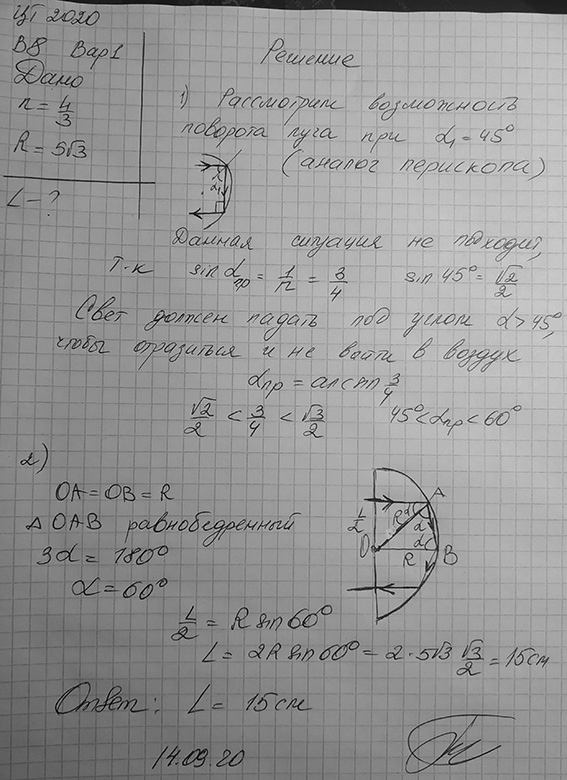 ЦТ 2020
В8 Вар1
Дано
n = 4/3
R = 5√3
L - ?
Решение
1) Рассмотрим возможность
поворота луча при α₁ = 45°
(аналог перископа)
α
α₁
Данная ситуация не подходит,
т-к sin α пр = 1/n = 3/4 sin 45° = √2/2
Свет должен падать под углом α > 45°,
чтобы отразиться и не выйти в воздух
α пр = arcsin 3/4
√2/2 < 3/4 < √3/2 45° < α пр < 60°
2)
OA = OB = R
Δ OAB равнобедренный
3α = 180°
α = 60°
A
L/2
R
α
α
O
α
B
R
L/2 = R sin 60°
L = 2R sin 60° = 2 · 5√3 √3/2 = 15 см
Ответ: L = 15 см
14.09.20